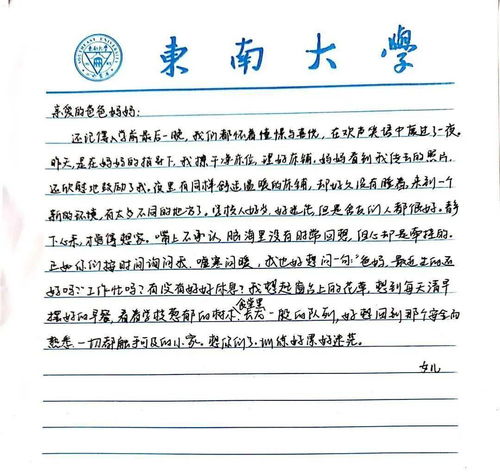 東南大學
亲爱的爸爸妈妈：
还记得入学前最后一晚，我们都怀着憧憬与喜悦，在欢声笑语中度过了一夜。
昨天是在妈妈的指导下，我擦干净床位，理好床铺，妈妈看到我传去的照片，
还欣慰地鼓励了我。夜里有同样舒适温暖的床铺，却好久没有睡着，来到一个
新的环境，有太多不同的地方了。学校人好多，好迷茫，但是舍友们人都很好。静
下心来，才觉得想家。嘴上不承认，脑海里没有时常回想，但心却是牵挂的。
正如你们按时间询问我，嘘寒问暖，我也好想问一句：“爸妈，最近生的还
好吗？工作忙吗？有没有好好休息？我想起窗台上的花草，想到每天清早
摆好的早餐，看着学校葱郁的树木，食堂里长龙一般的队列，好想回到那个安全而
熟悉，一切都触手可及的小家。想你们了，训练好累好迷茫。
女儿